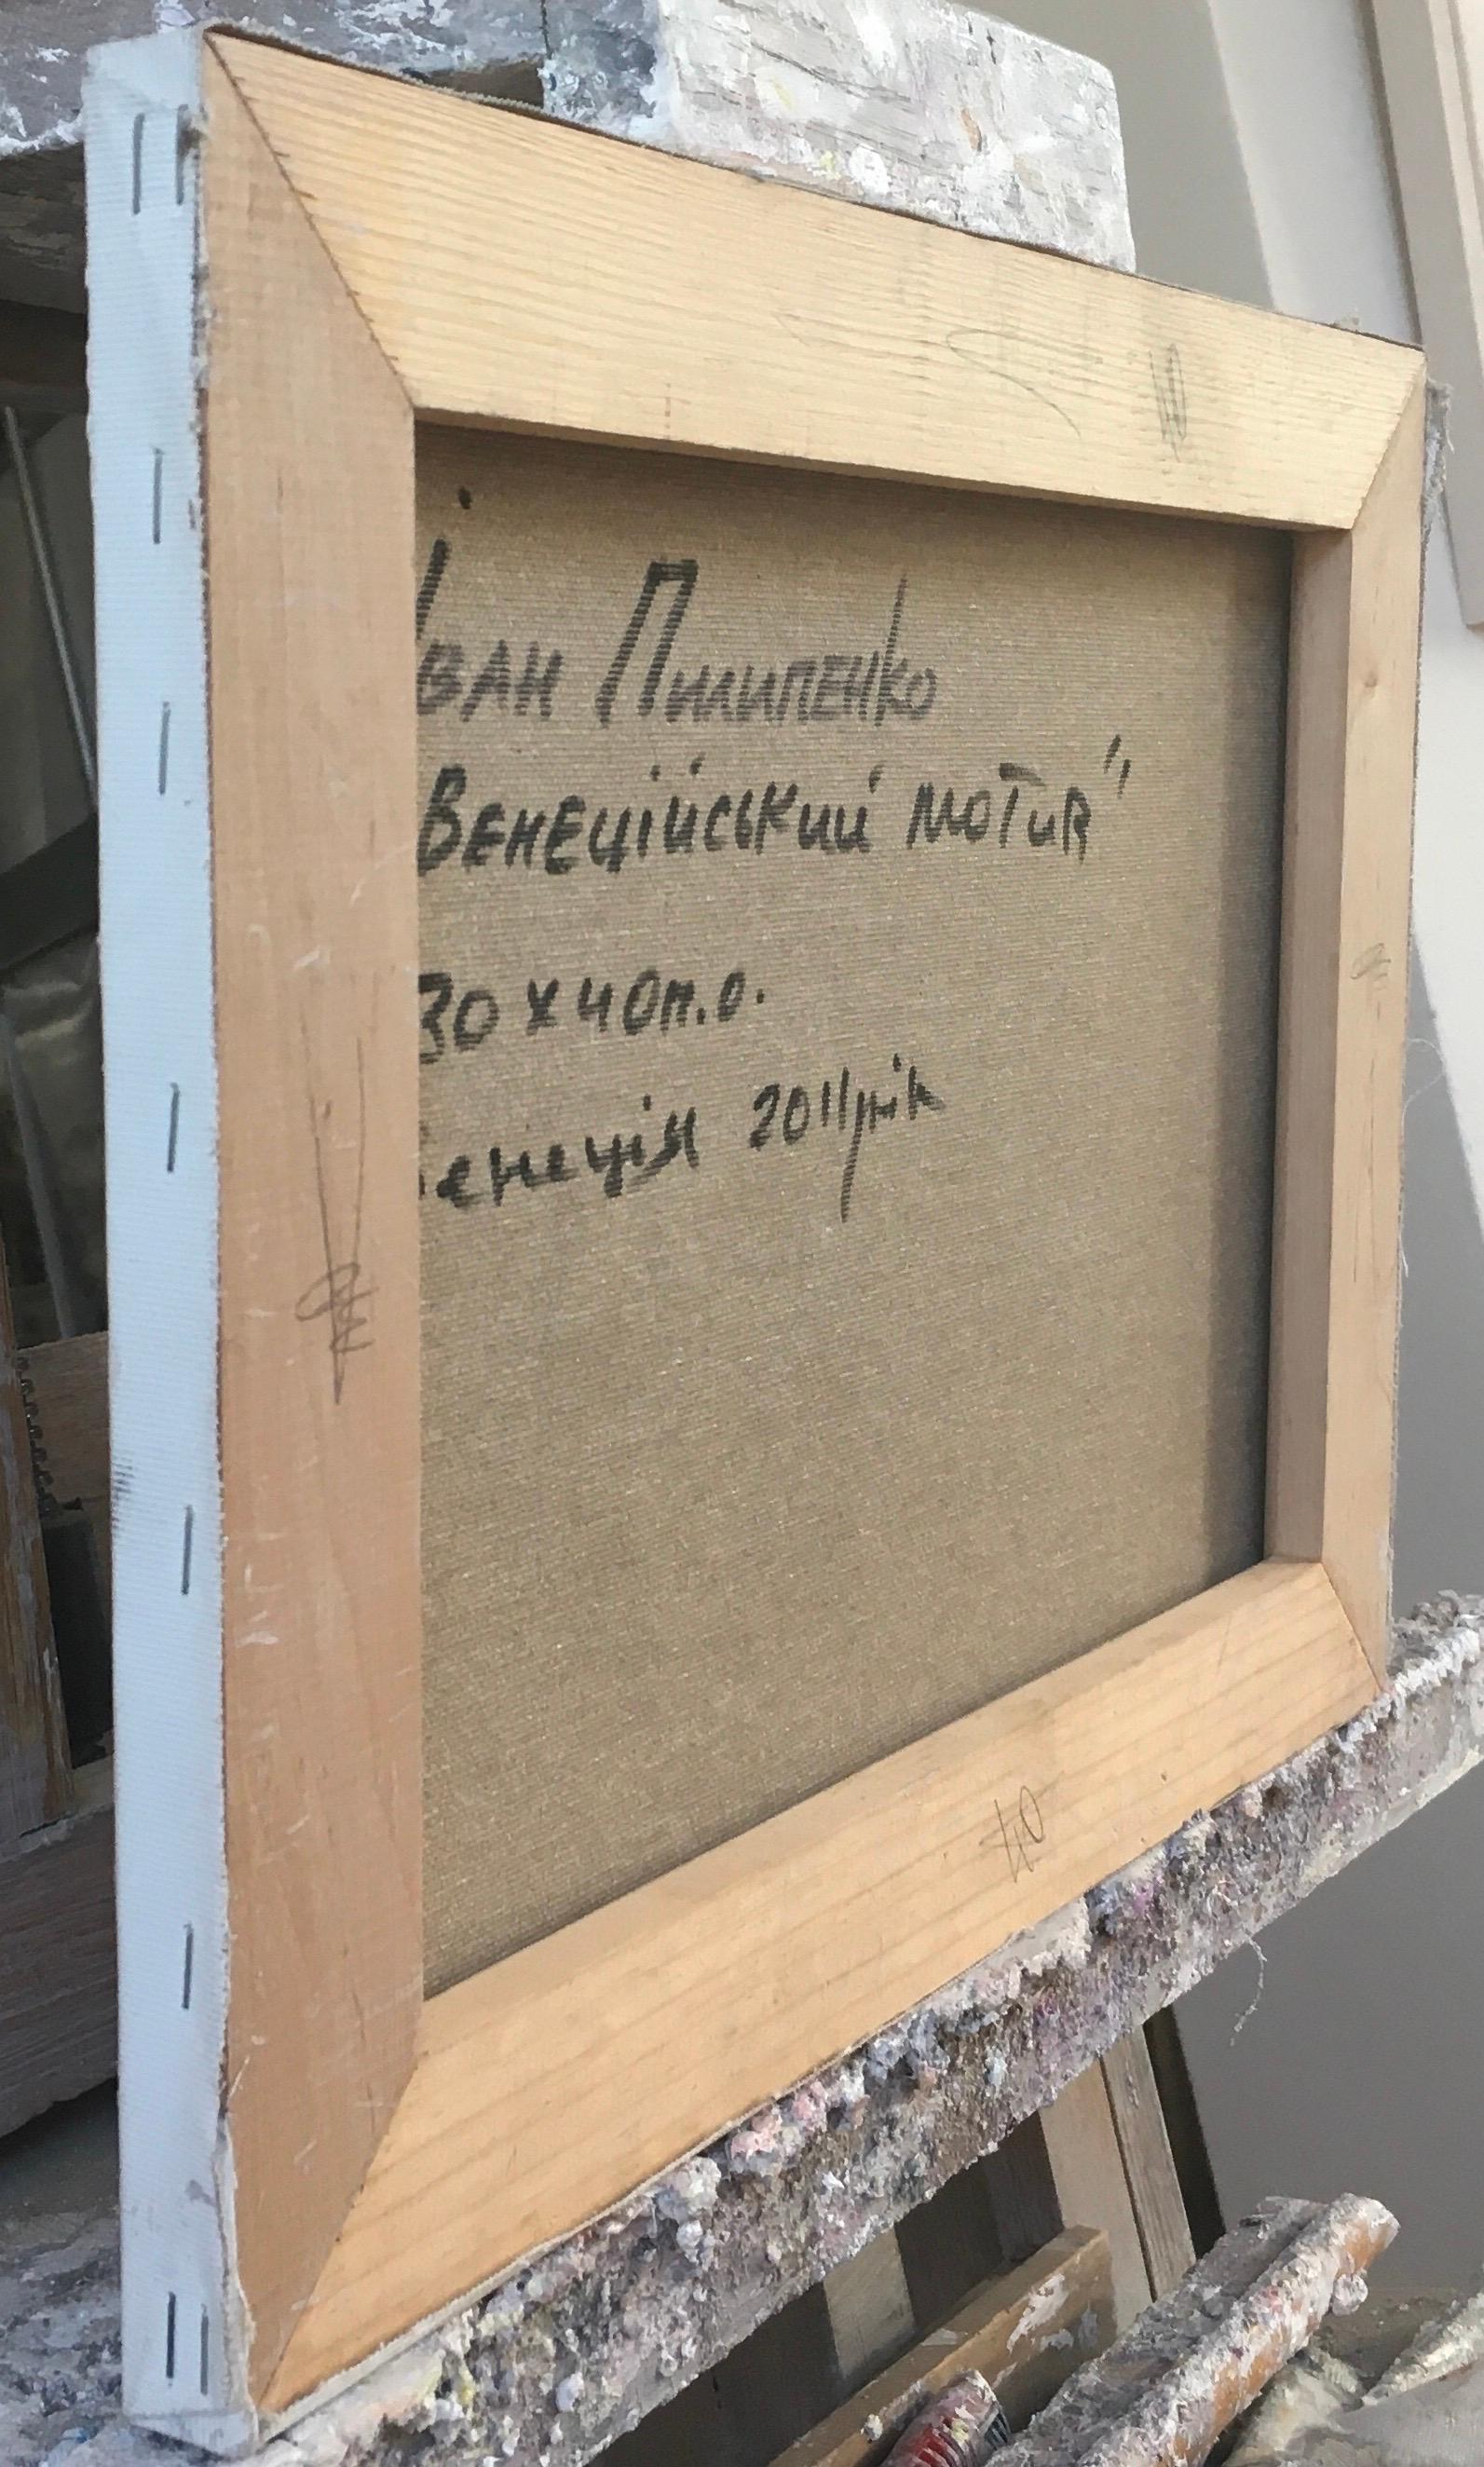 Іван Пилипенко
Венеційський мотив"
30 х 40 п.о.
енеція 2011 рік
40